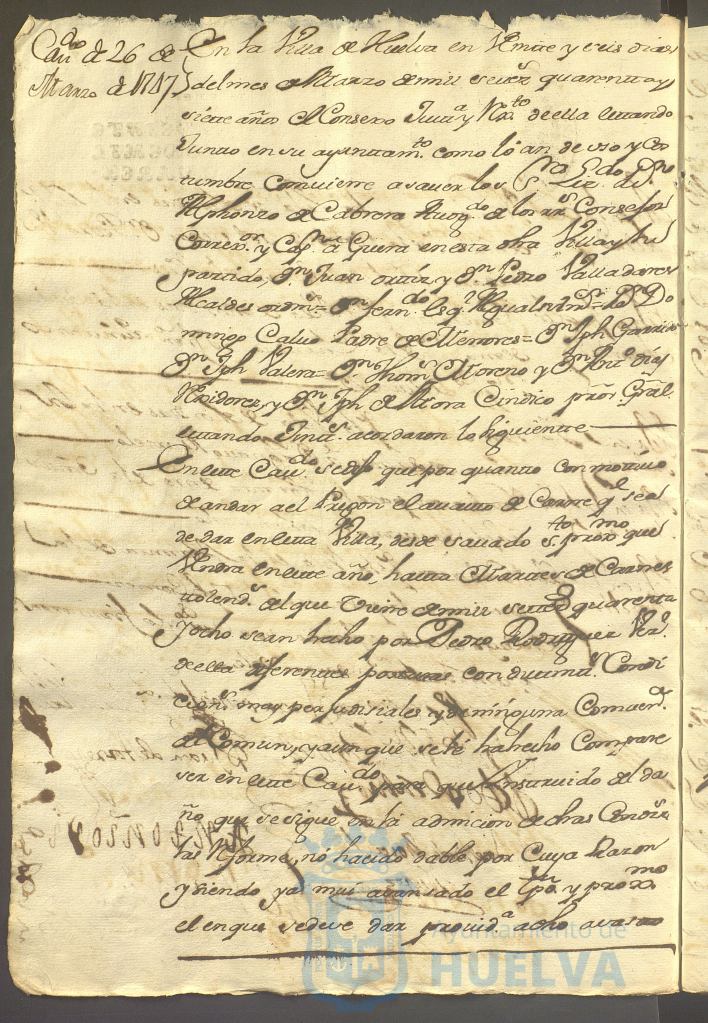 Cavdo de 26 de
Marzo de 1747
En la Villa de Huelva en Veinte y seis dias
del mes de Marzo de mil setezs quarenta y
siete años el Consexo Justa y Rexto de ella estando
Junto en su ayuntamto como lo an de uso y cos
tumbre, combiene a saver los Sres Lizdo Dn
Alphonzo de Cabrera Avogdo de los Rs Consejos
Correxor y Capn a Guera en esta dha Villa y su
partido, Dn Juan ortiz y Dn Pedro Valladares
Alcaldes ordins = Dn Ferndo Alguasil = Dn Do
mingo Calvo Padre de Menores = Dn Jph Garrido
Dn Jph Valera = Dn Thoms Moreno y Dn Anto días
Rexidores, y Dn Jph de Mora Cindico procor Gral
estando Juntos acordaron lo siguiente
En este Cavdo se dijo que por quanto con motivo
de andar a el Pregon el avasto de Carne qe se a
de dar en esta Villa, desde savado sto proxmo que
Vendra en este año, hasta Martes de Carnes
tolends del que Viene de mil setezs quarenta
y ocho se an hecho por Pedro Rodriguez Vezo
de ella diferentes posturas con distintas Condi
cions muy perjudisiales y de ninguna Combend
al Comun, y aunque se le ha hecho Compare
ser en este Cavdo para que Instruido del da
ño que se sigue en la admicion de dhas Condizs
las reforme, no ha cido dable, por Cuya Razon
y siendo ya mui avansado el tpo y proxmo
el en que se deve dar provida a dho avasto
Ayuntamiento de
HUELVA